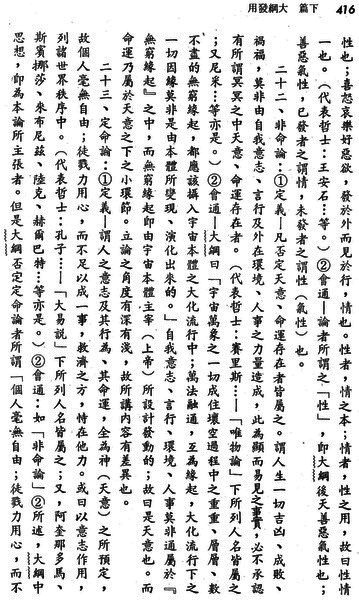 416　下篇　大綱發用
性也；喜怒哀樂好惡欲，發於外而見於行，情也。性者，情之本；情者，性之用，故曰性情
一也。（代表哲士：王安石…等。）②會通—論者所謂之「性」，即大綱後天善惡氣性也；
善惡氣性，已發者之謂情，未發者之謂性（氣性）也。
二十二、非命論：①定義—凡否定天意、命運存在者皆屬之。謂人生一切吉凶、成敗、
禍福，莫非由自我意志、言行及外在環境、人事之力量造成，此為顯而易見之事實，必不承認
有所謂冥冥之中天意、命運存在者。（代表哲士：賽里斯…—「唯物論」下所列人名皆屬之
；又尼采…等亦是。）②會通—大綱曰「宇宙萬象之一切成住壞空過程中之重重、層層、數
不盡的無窮緣起，都應該攝入宇宙本體之大化流行中；萬法融通，互為緣起，大化流行下之
一切因緣莫非是由本體所變現、演化出來的。」自我意志、言行、環境、人事莫非通屬於『
無窮緣起』之中，而無窮緣起即由宇宙本體主宰（上帝）所設計發動的；故曰是天意也。而
命運乃屬於天意之下之小環節。立論之角度有深有淺，故所講內容有差異也。
二十三、定命論：①定義—謂人之意志及其行為、其命運，全為神（天意）之所預定，
故個人毫無自由；徒戮力用心，而不足以成一事，救濟之方，恃在他力。或曰以意志作用，
列諸世界秩序中。（代表哲士：孔子…—「大易說」下所列人名皆屬之；又，阿奎那多馬、
斯賓挪莎、來布尼茲、陸克、赫爾巴特…等亦是。）②會通—如「非命論」②所述，大綱中
思想，即為本論所主張者。但是大綱否定定命論者所謂「個人毫無自由；徒戮力用心，而不